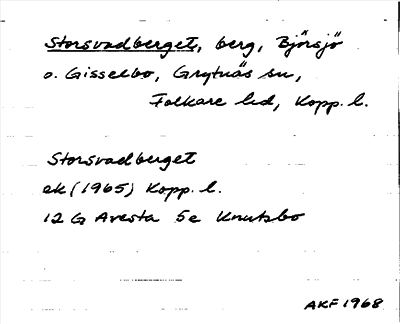 Storsvadberget, berg, Björsjö
o. Gisselbo, Grytnäs sn,
Folkare hd, Kopp. l.
Storsvadberget
ek (1965) Kopp. l.
12 G Avesta 5e Knutsbo
AKF 1968